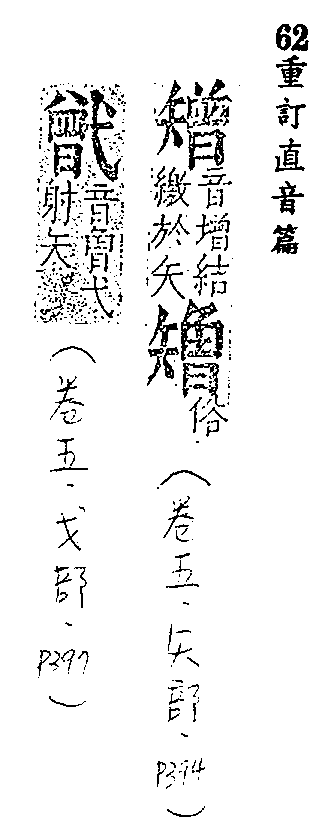 62重訂直音篇
矰
音增結
繳於矢
俗
(卷五.矢部.P394)
音曾弋
射矢
(卷五.戈部.P397)